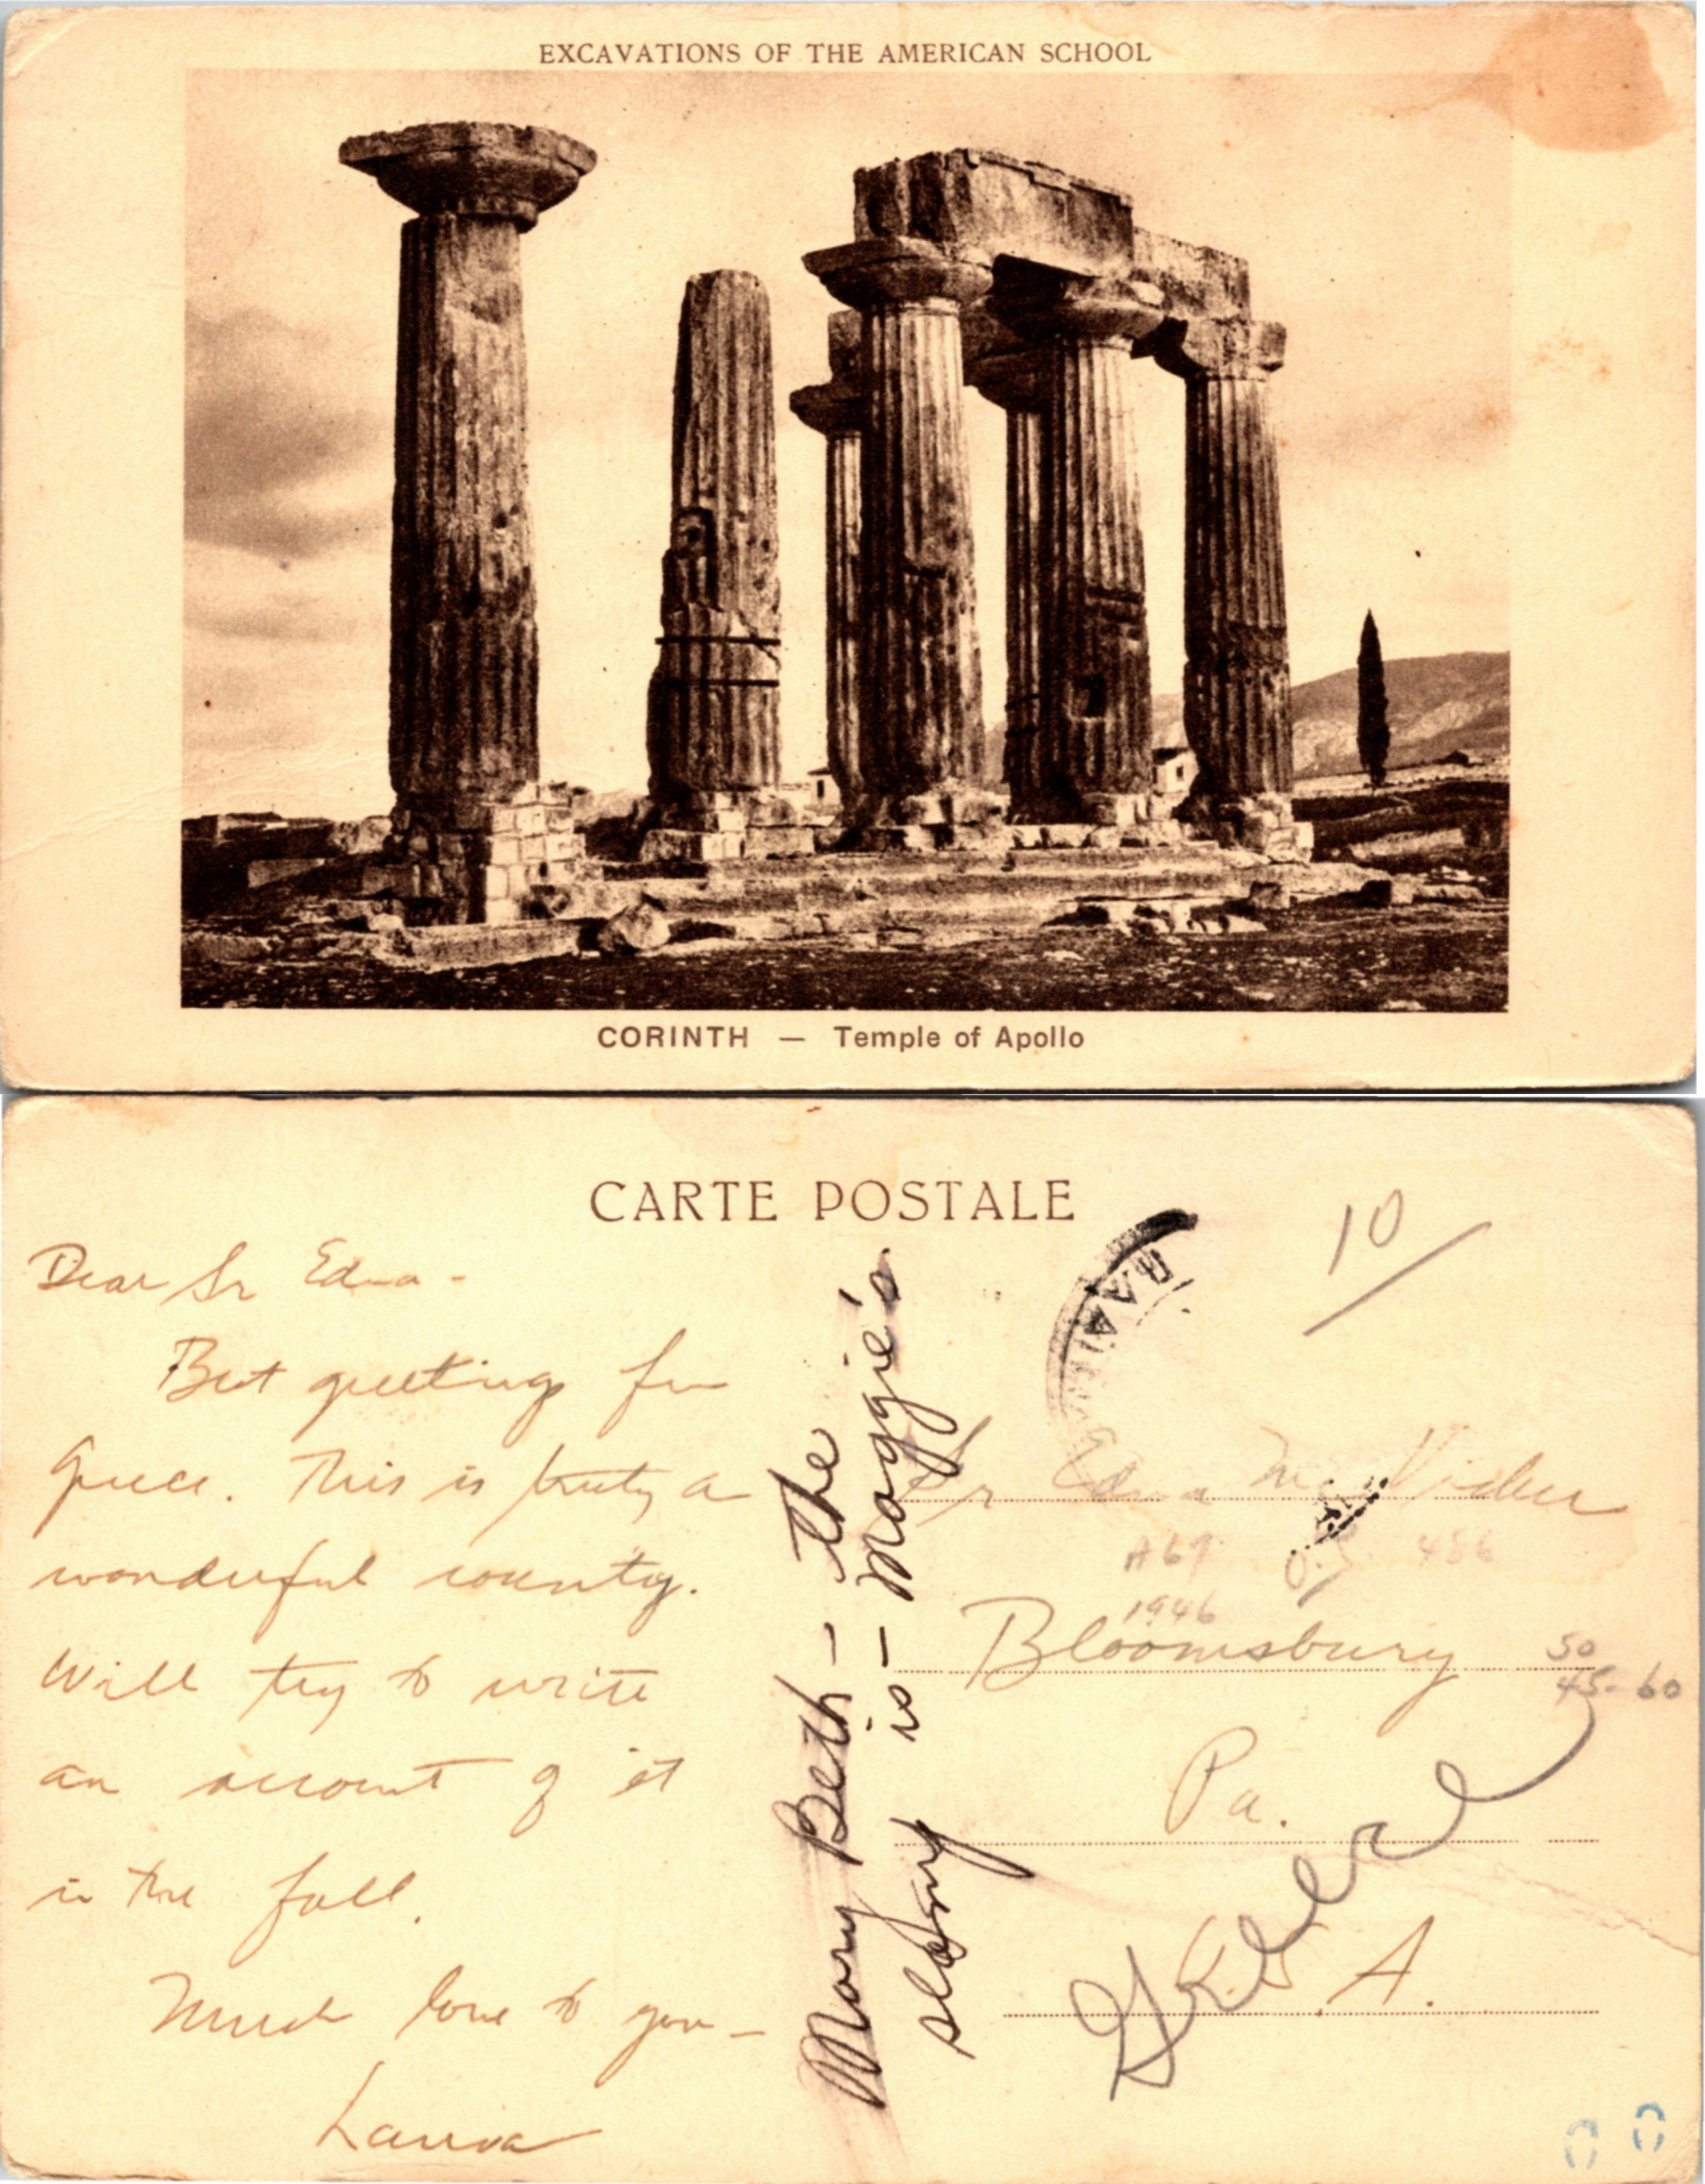 EXCAVATIONS OF THE AMERICAN SCHOOL
CORINTH — Temple of Apollo
CARTE POSTALE
10
Dear Sr Edna -
Best greetings from
Greece. This is truly a
wonderful country.
Will try to write
an account of it
in the fall.
Much love to you —
Mary Beth — the
is — Maggie's
Sr Edna
A 69
486
1946
Bloomsbury
50
45-60
Pa.
A.
Greece